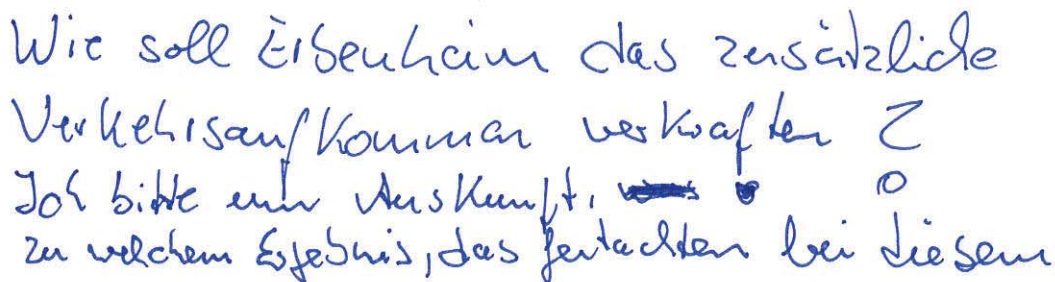 Wie soll Erbenheim das zusätzliche
Verkehrsaufkommen verkraften ?
Ich bitte um Auskunft,
zu welchem Ergebnis, das Gutachten bei diesem